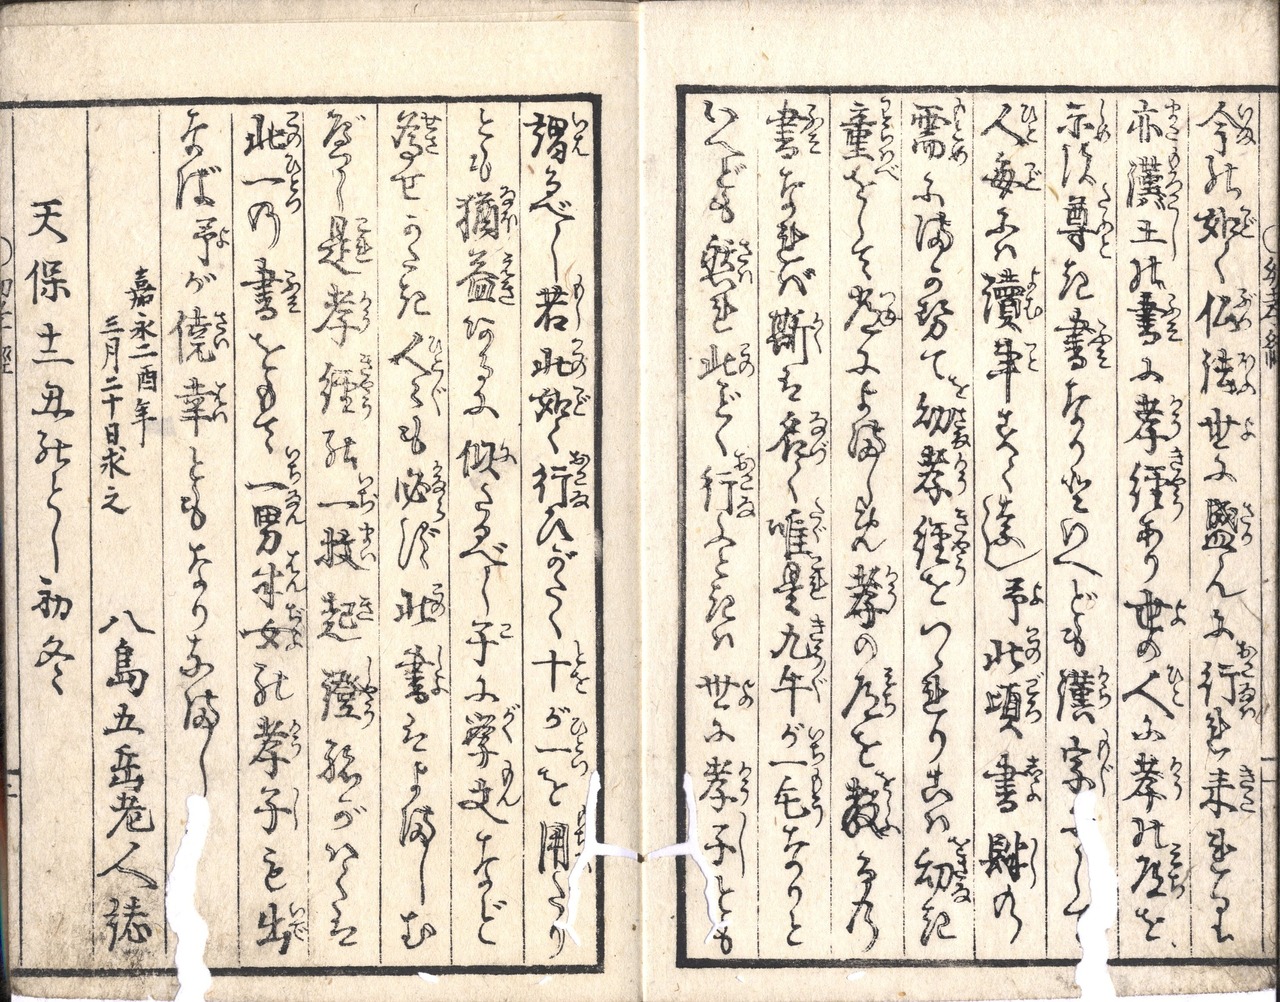 今の如く仏法世に盛んに行れ来れり
亦漢土の書に孝経あり世の人に孝の道を
示す尊き書なりといへども漢字にして
人毎には読事すくなし予此頃書肆の
需に依り努て幼孝経をつくれりこは幼き
童をして常によましめ孝の道を教るの
書なれば斯は名く唯是九牛が一毛なりと
いへども然れ此ごとく行ふときは世に孝子とも
謂べし若此如く行ひがたく十が一を用たり
とも猶益あるに似たるべし子に学文など
為せがたき人々も必ず此書をよましむ
べし是孝経の一枝起證猿がはしは
此一つの書をもて一男半女の孝子も出
なば予が僥幸ともなりなまし
嘉永二酉年
三月二十日求之
八島五岳老人誌
天保十二丑のとし初冬